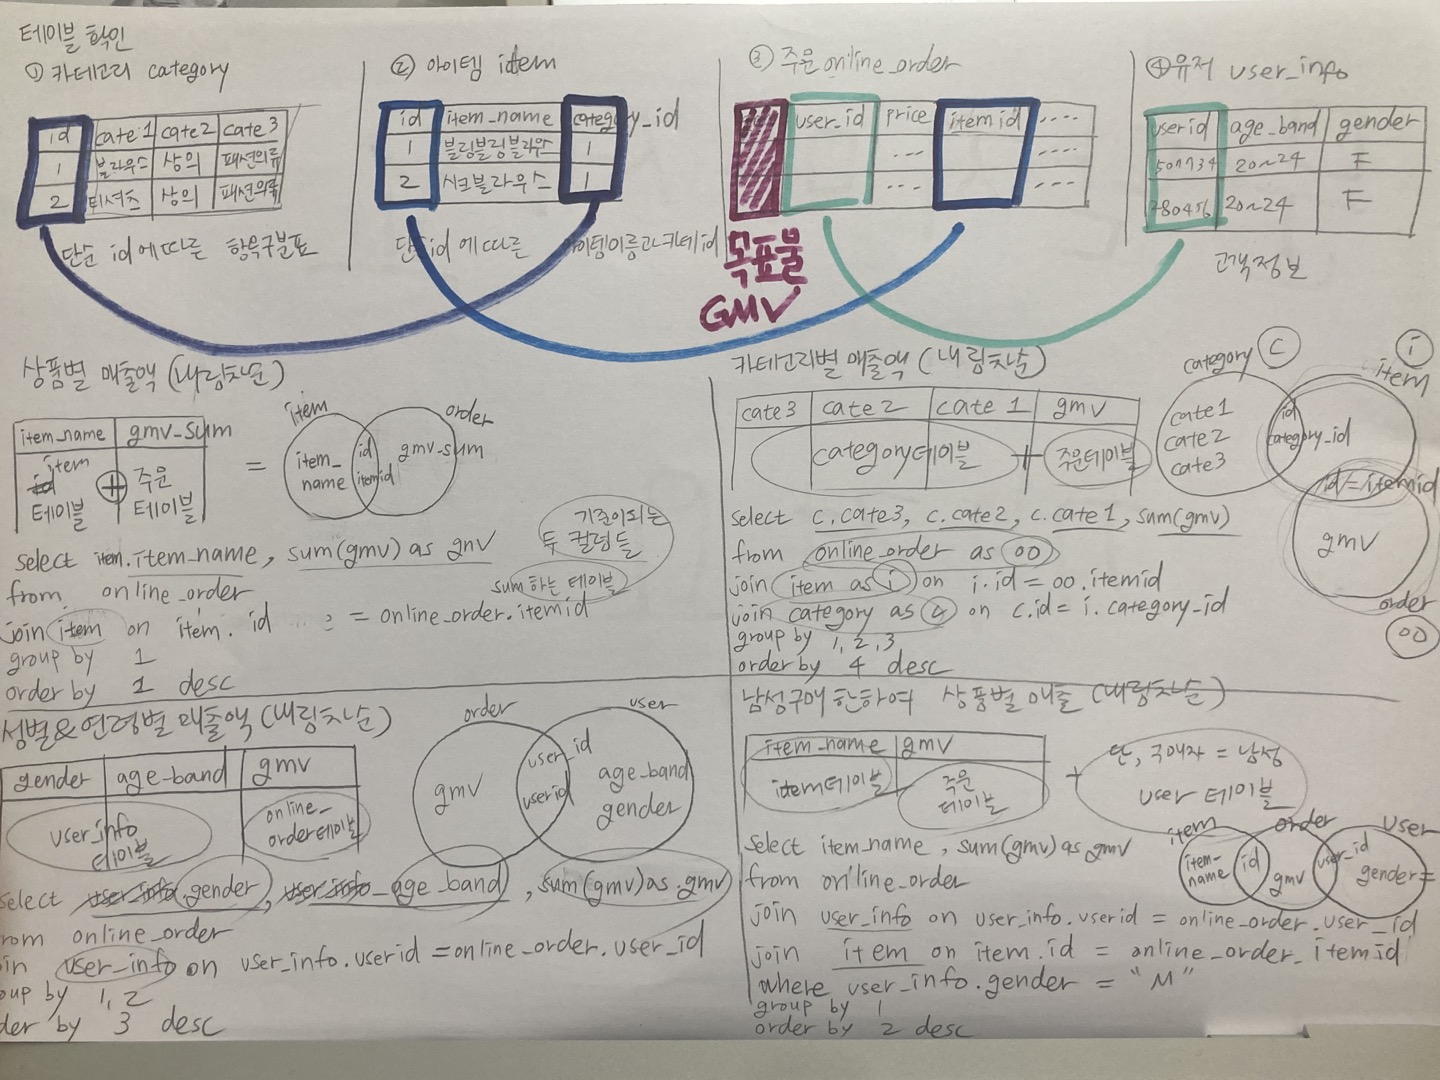 테이블 확인
① 카테고리 category
id cate1 cate2 cate3
1 블라우스 상의 패션의류
2 티셔츠 상의 패션의류
단순 id에 따른 항목구분표
② 아이템 idem
id item_name category_id
1 블링블링블라우스 1
2 시크블라우스 1
단순 id에 따른 아이템이름과 카테id
③ 주운 online_order
user_id price itemid ....
... ....
... ---
목표물
GMV
④ 유저 user_info
userid age_band gender
20~24 F
780456 20~24 F
고객정보
상품별 매출액 (내림차순)
item_name gmv_sum
item
테이블 + 주운
테이블
=
item order
item_
name
id
itemid
gmv-sum
select item.item_name, sum(gmv) as gmv
from online_order
join item on item.id = online_order.itemid
group by 1
order by 1 desc
기준이되는
두 컬럼들
sum 하는 테이블
카테고리별 매출액 (내림차순)
cate3 cate2 cate1 gmv
category테이블 + 주운테이블
category C
i
item
cate1
cate2
cate3
id
category_id
id=itemid
gmv
order
oo
select c.cate3, c.cate2, c.cate1, sum(gmv)
from online_order as oo
join item as i on i.id = oo.itemid
join category as c on c.id = i.category_id
group by 1, 2, 3
order by 4 desc
성별&연령별 매출액 (내림차순)
gender age_band gmv
user_info
테이블
online_
order테이블
order user
gmv
user_id
userid
age_band
gender
select gender, age_band, sum(gmv) as gmv
from online_order
in user_info on user_info.userid = online_order.user_id
oup by 1, 2
der by 3 desc
남성구매 한하여 상품별 매출 (내림차순)
item_name gmv
item테이블
주운
테이블
+ 단, 구매자 = 남성
user 테이블
item order user
item-
name
id
gmv
user_id
gender=
select item_name, sum(gmv) as gmv
from online_order
join user_info on user_info.userid = online_order.user_id
join item on item.id = online_order_itemid
where user_info.gender = "M"
group by 1
order by 2 desc